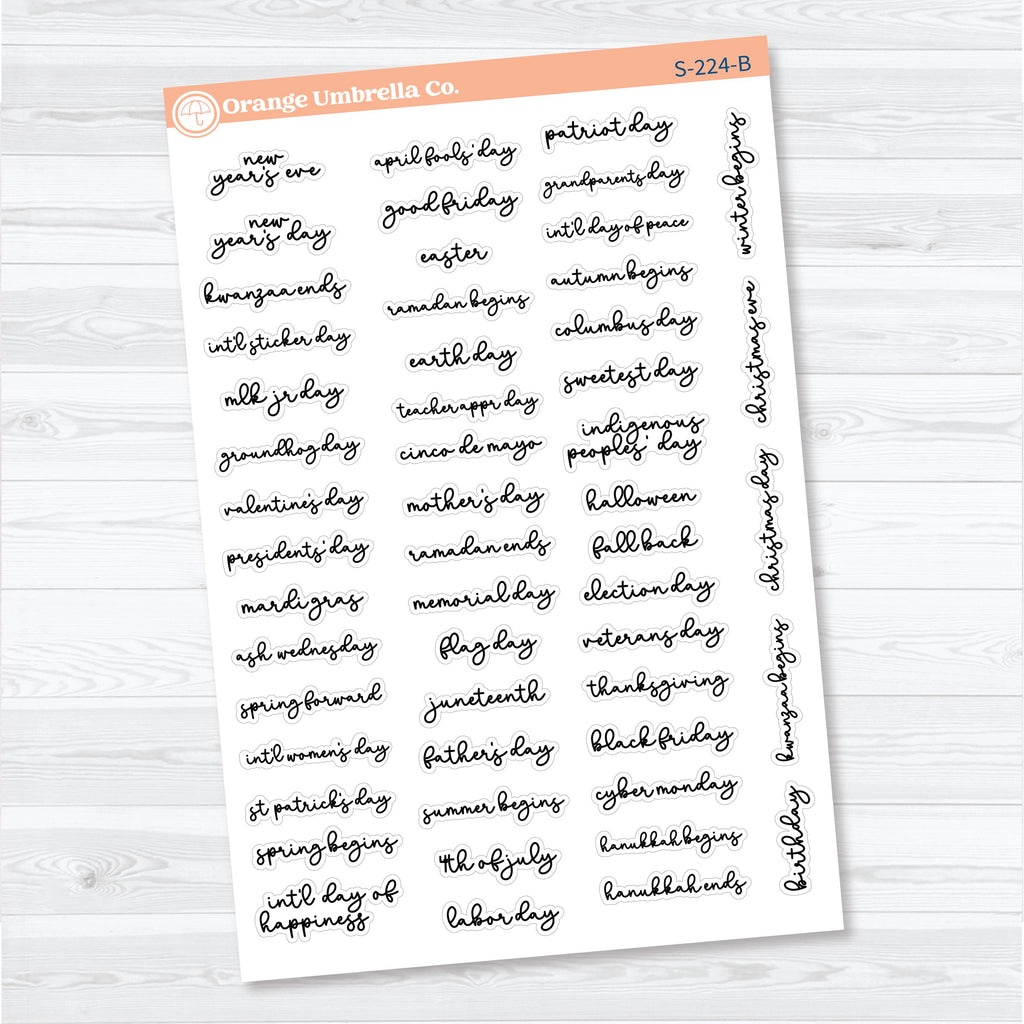 Orange Umbrella Co.
S-224-B
new
year's eve
new
year's day
kwanzaa ends
int'l sticker day
mlk jr day
groundhog day
valentine's day
presidents' day
mardi gras
ash wednesday
spring forward
int'l women's day
st patrick's day
spring begins
int'l day of
happiness
april fools' day
good friday
easter
ramadan begins
earth day
teacher appr day
cinco de mayo
mother's day
ramadan ends
memorial day
flag day
juneteenth
father's day
summer begins
4th of july
labor day
patriot day
grandparents day
int'l day of peace
autumn begins
columbus day
sweetest day
indigenous
peoples' day
halloween
fall back
election day
veterans day
thanksgiving
black friday
cyber monday
hanukkah begins
hanukkah ends
winter begins
christmas eve
christmas day
kwanzaa begins
birthday